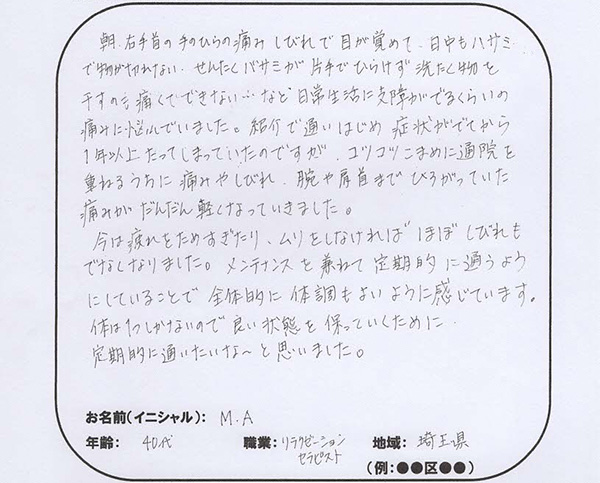 朝、右手首の手のひらの痛み しびれで目が覚めて、日中もハサミ…
で物が切れない、せんたくバサミが片手でひらけず洗たく物を
干すのも痛くてできない…など日常生活に支障がでるくらいの
痛みに悩んでいました。紹介で通いはじめ 症状がでてから
1年以上たってしまっていたのですが、コツコツこまめに通院を
重ねるうちに痛みやしびれ、腕や肩首までひろがっていた
痛みがだんだん軽くなっていきました。
今は疲れをためすぎたり、ムリをしなければほぼしびれも
でなくなりました。メンテナンスを兼ねて定期的に通うよう
にしていることで全体的に体調もよいように感じています。
体は1つしかないので良い状態を保っていくために、
定期的に通いたいな〜と思いました。
お名前(イニシャル): M.A
年齢: 40代 職業: リラクゼーションセラピスト 地域: 埼玉県
(例:●●区●●)